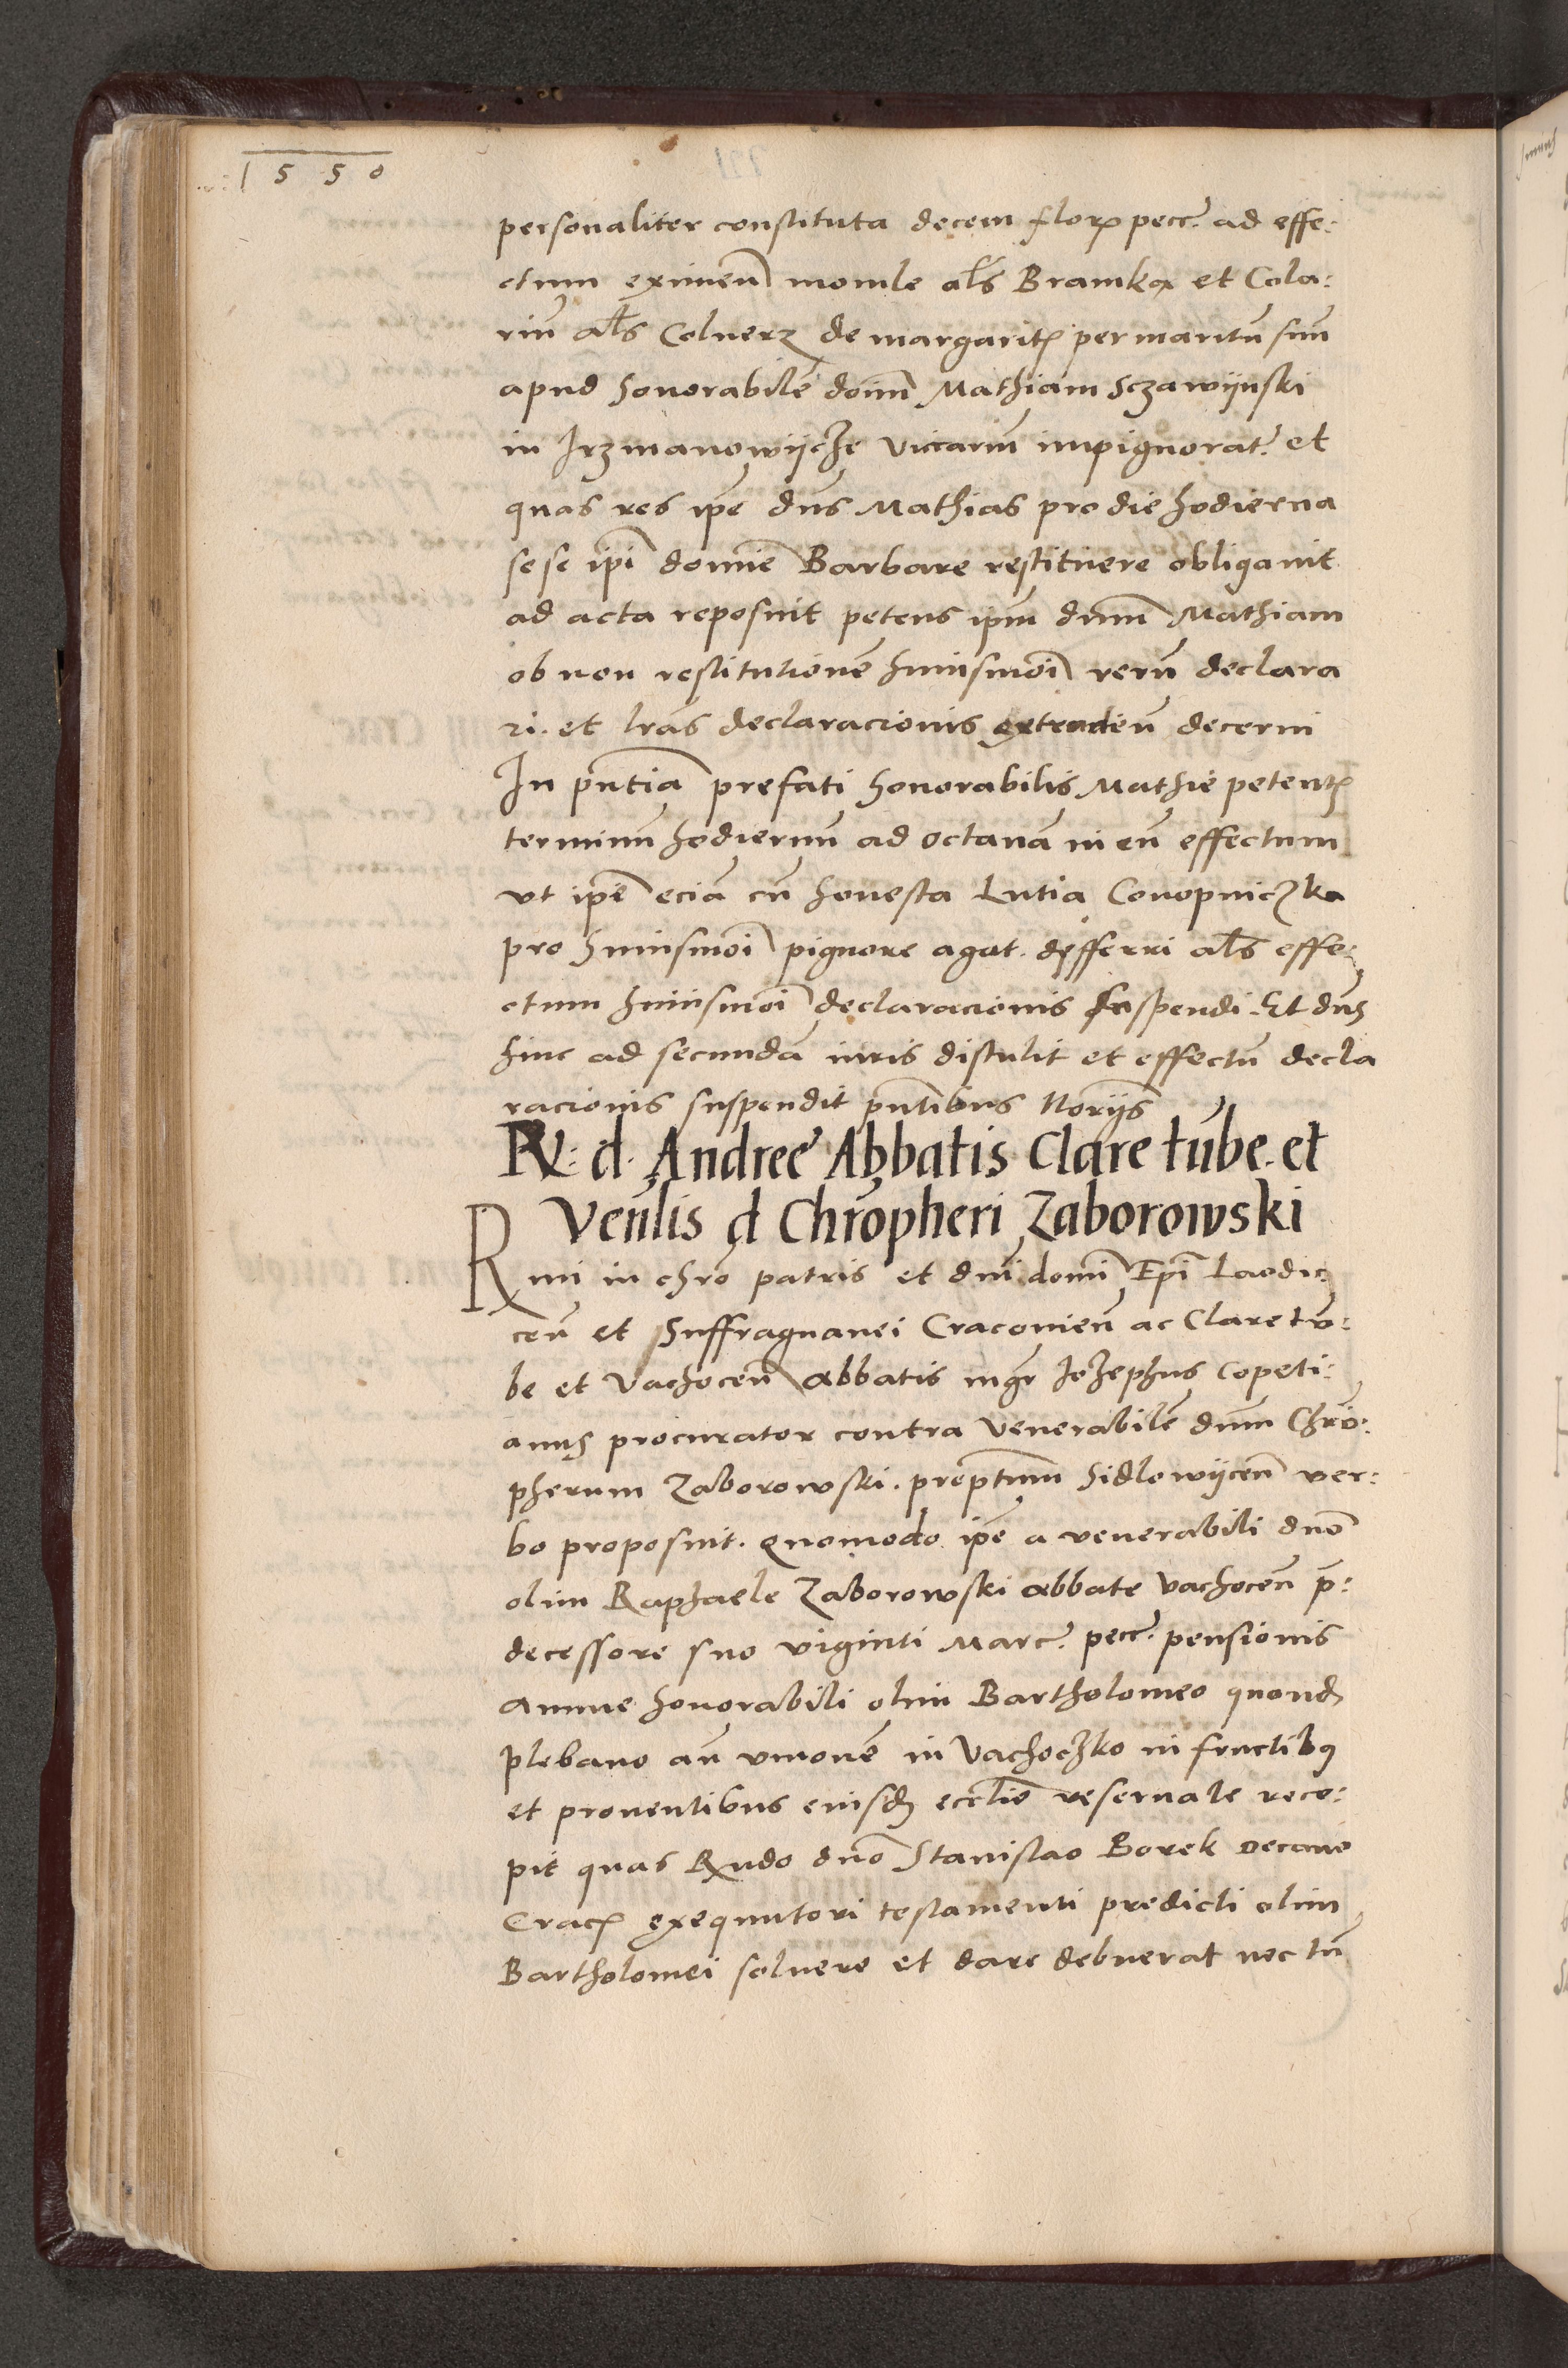 1550
personaliter constituta decem florꝭ pecc. ad effe:
ctum eximen̄ monile al̄s Bramka et Cola:
riū al̄s Colnerz de margaritꝭ per maritū suū
apud honorabilē dom̄ Mathiam Sczawijnski
in Irzmanowijcze vicariū impignorat. et
quas res ip̄e dn̄s Mathias pro die hodierna
sese ip̄i domīe Barbare restituere obligauit
ad acta reposuit petens ip̄m dnm̄ Mathiam
ob non restitutionē huiusmoī rerū declara
ri. et l̄ras declaracionis extraden̄ decerni
In pn̄tia prefati honorabilis Mathie petentꝭ
terminū hodiernū ad octauā in eū effectum
vt ip̄e eciā cū honesta Lutia Conopniczka
pro huiusmoī pignore agat. differri al̄s effe:
ctum huiusmoī declaracionis suspendi. Et dn̄s
hinc ad secundā iuris distulit et effectū decla
racionis suspendit pn̄tibus Norijs
Rx: d. Andree Abbatis Clare tūbe. et
Venl̄is d Chrōpheri Zaborowski
Rmi in chr̄o patris et dn̄i domī Ep̄i Laodic
cen̄ et Suffraganei Cracouien̄ ac Clare tū:
be et Vachocen̄ abbatis mgr̄ Jozephus Copeti:
anus procurator contra venerabilē dnm̄ Chrō:
pherum Zaborowski. prep̄tum Sidlowijcen̄ ver:
bo proposuit. Quomodo ip̄e a venerabili dnō
olim Raphaele Zaborowski abbate Vachocen̄ p̄:
decessore suo viginti Marc. pecc. pensionis
annue honorabili olim Bartholomeo quond
plebano an̄ vnionē in Vachoczko in fructibꝰ
et prouentibus eiusd eccl̄ie reseruate rece:
pit quas Rxndo dnō Stanislao Borek Decano
Cracꝭ exequutori testamenti predicti olim
Bartholomei soluere et dare debuerat nec tn̄